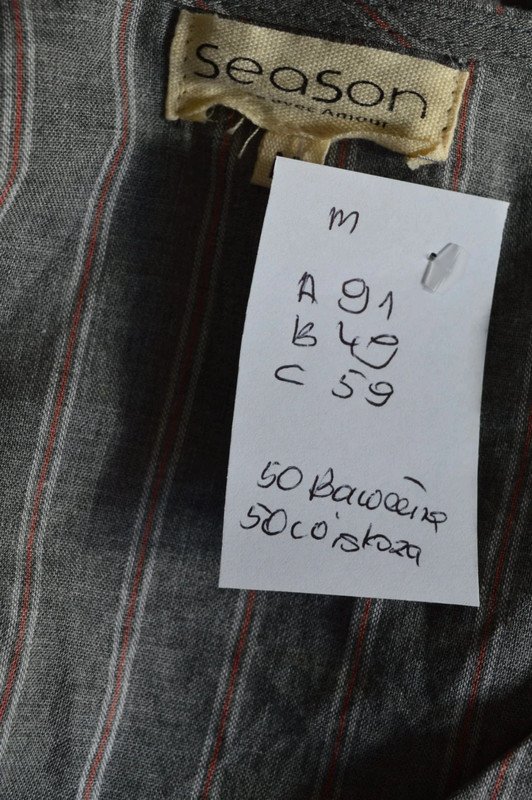 season
avec Amour
M
A 91
B 49
C 59
50 Bawełna
50 wiskoza